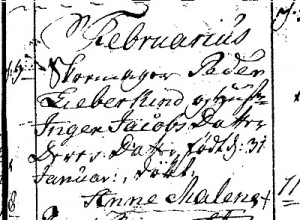 Februarius
Skomager Peder
Lieberkind og hust:
Inger Jacobs Datter
Deres Datter født d: 31
Januar:, døbt
Anne Malene